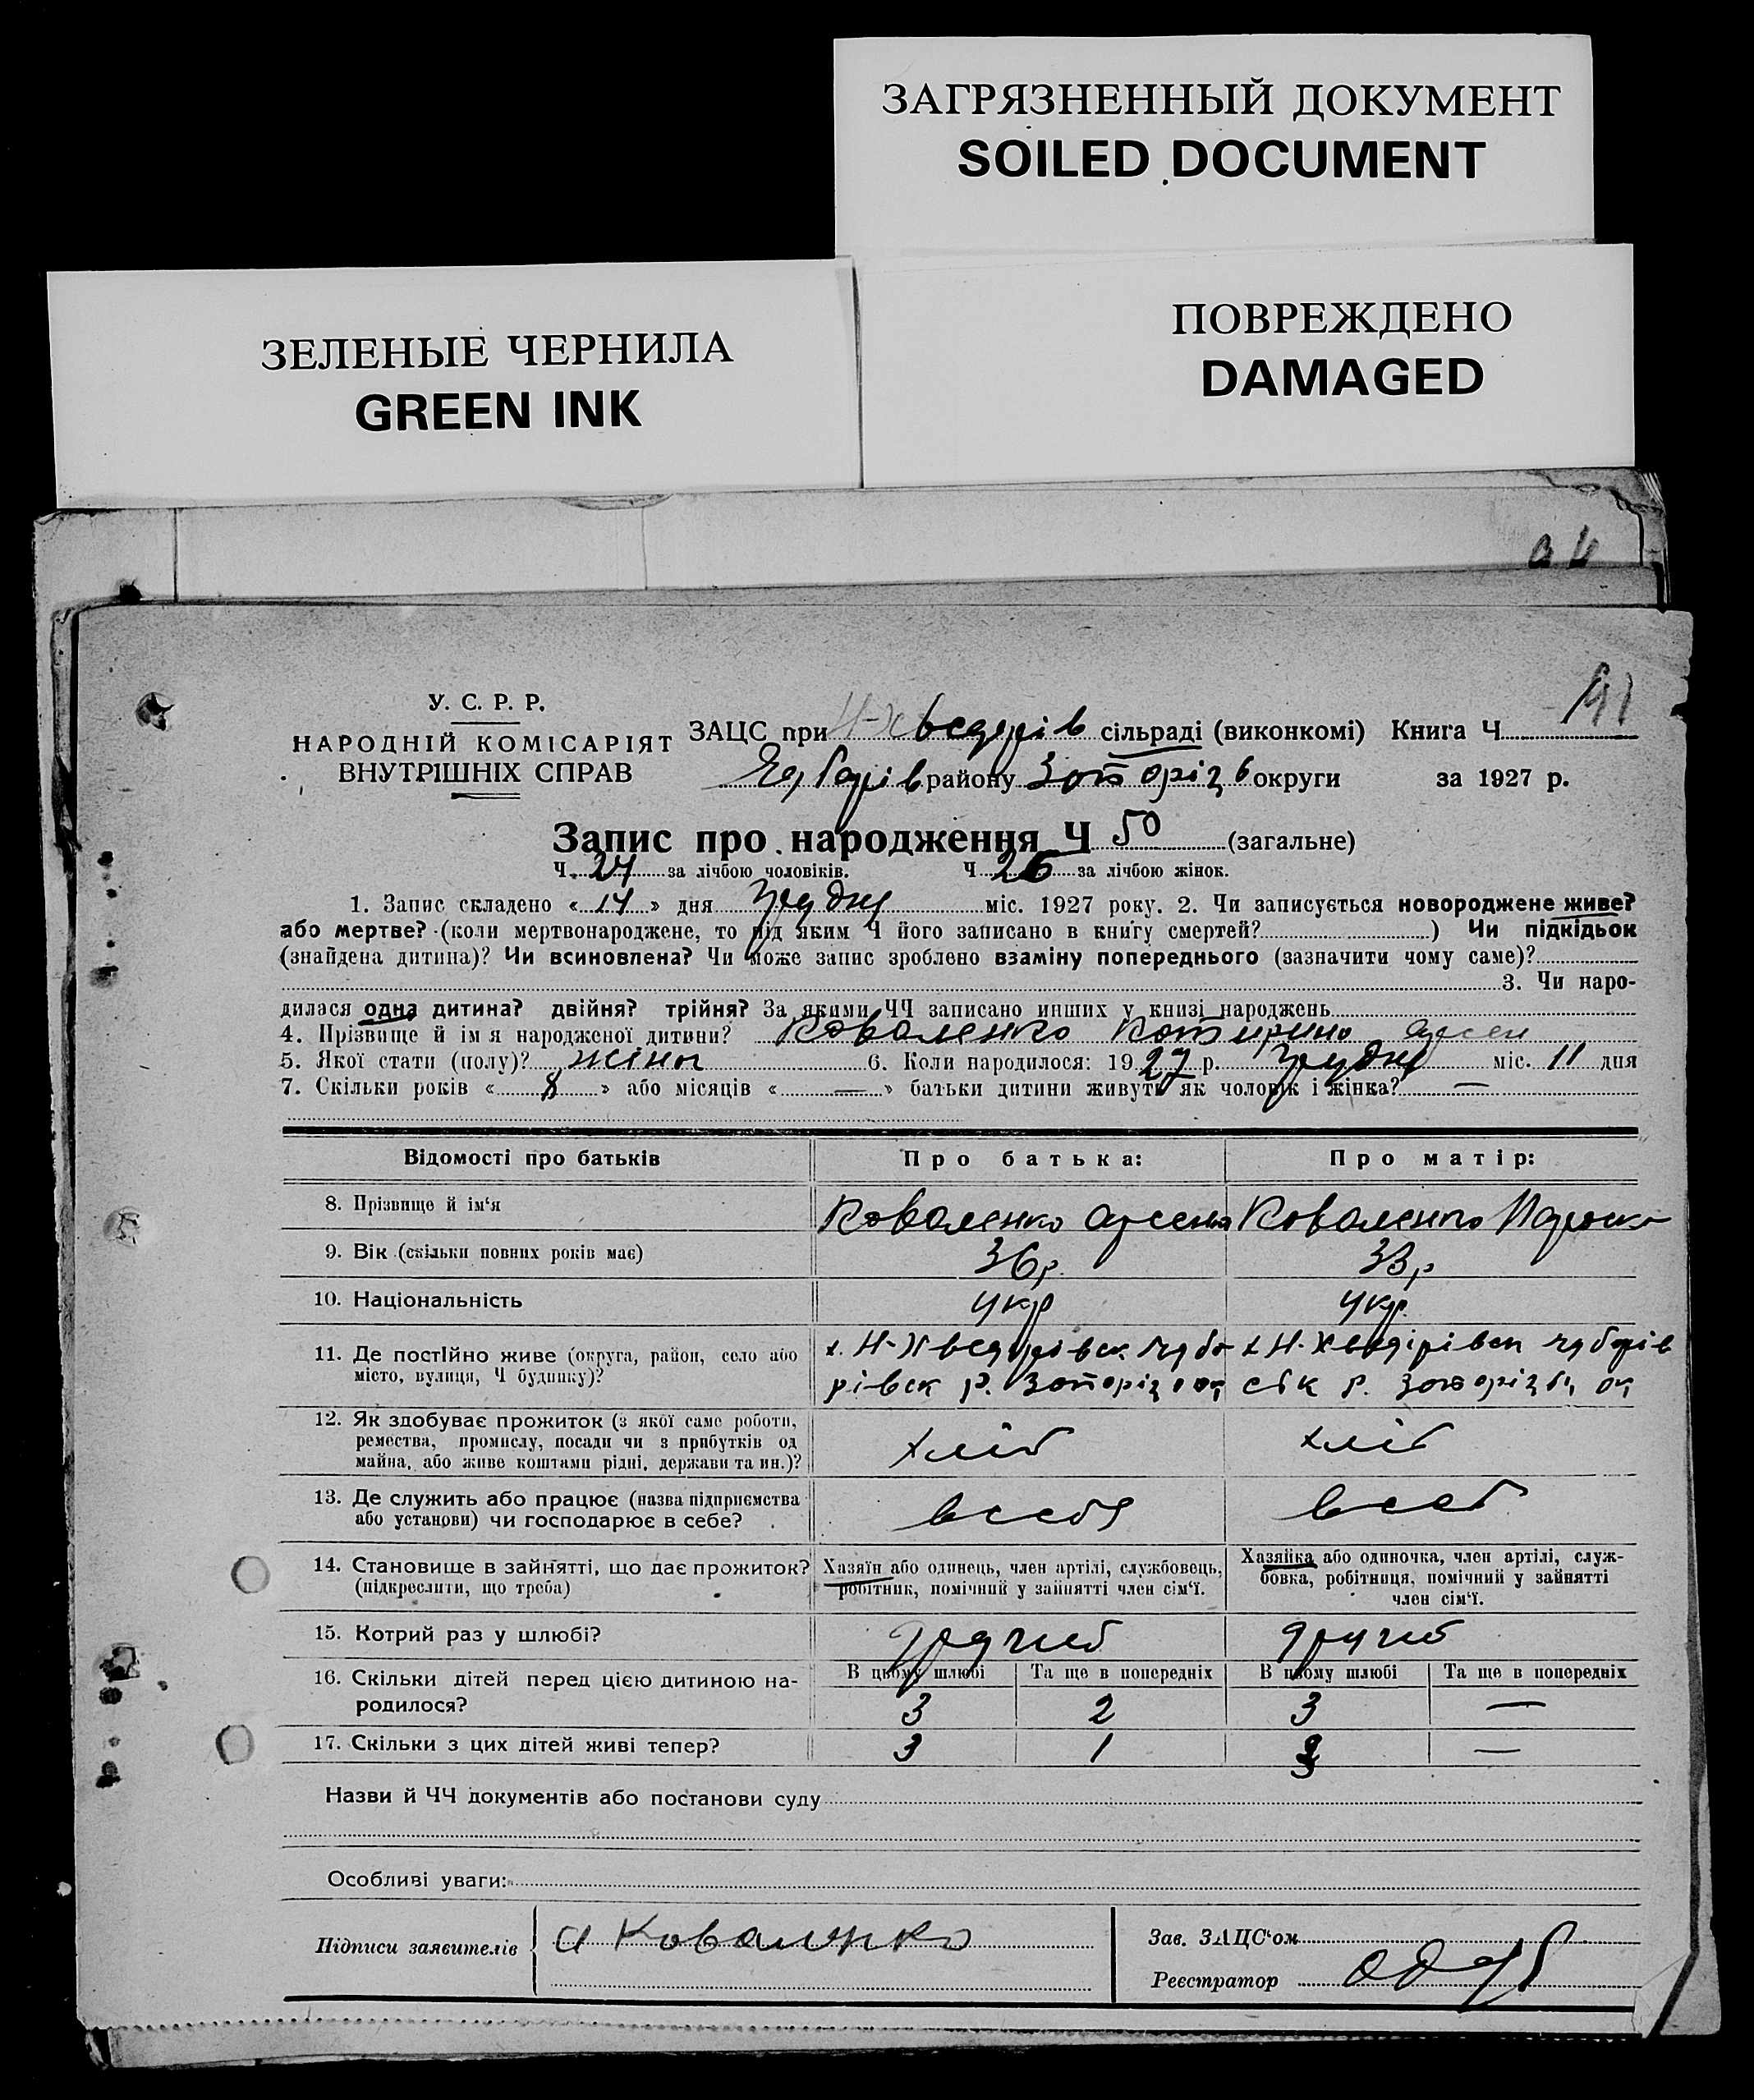 ЗАГРЯЗНЕННЫЙ ДОКУМЕНТ
SOILED DOCUMENT
ЗЕЛЕНЫЕ ЧЕРНИЛА
GREEN INK
ПОВРЕЖДЕНО
DAMAGED
У. С. Р. Р.
НАРОДНІЙ КОМІСАРІЯТ
ВНУТРІШНІХ СПРАВ
ЗАЦС при сільраді (виконкомі) Книга Ч
району округи за 1927 р.
Запис про народження Ч 50 (загальне)
Ч. 24 за лічбою чоловіків. Ч 26 за лічбою жінок.
1. Запис складено « 14 » дня Грудня міс. 1927 року. 2. Чи записується новороджене живе?
або мертве? (коли мертвонароджене, то під яким Ч його записано в книгу смертей? ) Чи підкідьок
(знайдена дитина)? Чи всиновлена? Чи може запис зроблено взаміну попереднього (зазначити чому саме)?
3. Чи наро-
дилася одна дитина? двійня? трійня? За якими ЧЧ записано инших у книзі народжень
4. Прізвище й ім я народженої дитини? Коваленко Катирина Арсен
5. Якої стати (полу)? жіноч 6. Коли народилося: 1927 р. Грудня міс. 11 дня
7. Скільки років « 8 » або місяців « — » батьки дитини живуть як чоловік і жінка? —
Відомості про батьків Про батька: Про матір:
8. Прізвище й ім‘я Коваленко Арсентій Коваленко Параска
9. Вік (скільки повних років має) 36 р. 33 р
10. Національність укр укр.
11. Де постійно живе (округа, район, село або
місто, вулиця, Ч будинку)?
12. Як здобуває прожиток (з якої саме роботи,
ремества, промислу, посади чи з прибутків од
майна, або живе коштами рідні, держави та ин.)? хліб хліб
13. Де служить або працює (назва підприємства
або установи) чи господарює в себе? в себя в себ
14. Становище в зайнятті, що дає прожиток?
(підкреслити, що треба)
Хазяїн або одинець, член артілі, службовець,
робітник, помічний у зайнятті член сім‘ї.
Хазяйка або одиночка, член артілі, служ-
бовка, робітниця, помічний у зайнятті
член сім‘ї.
15. Котрий раз у шлюбі?
16. Скільки дітей перед цією дитиною на-
родилося?
В цьому шлюбі Та ще в попередніх В цьому шлюбі Та ще в попередніх
3 2 3 —
17. Скільки з цих дітей живі тепер? 3 1 3 —
Назви й ЧЧ документів або постанови суду
Особливі уваги:
Підписи заявителів А Коваленко
Зав. ЗАЦС‘ом
Реєстратор